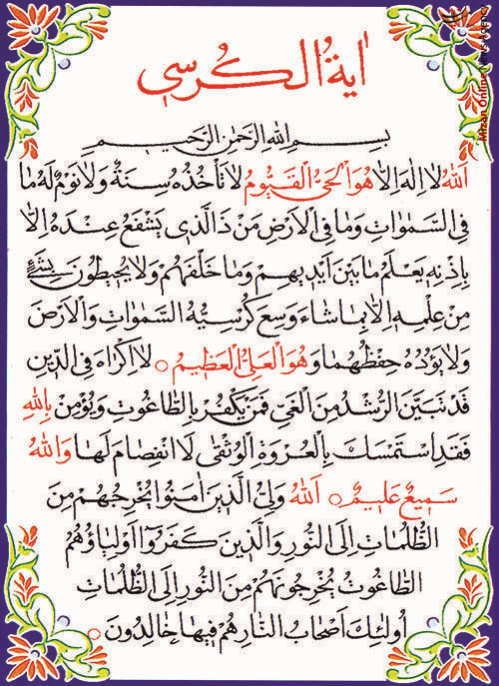 اٰیةُ الکُرسی
بِسمِ اللهِ الرَحمٰنِ الرَحیمِ
اَللهُ لا اِلٰهَ اِلّا هُوَ الحَیُّ القَیُّومُ لا تَأخُذُهُ سِنَةٌ وَلا نَومٌ لَهُ ما
فِی السَّمٰواتِ وَما فِی الاَرضِ مَن ذَا الَّذی یَشفَعُ عِندَهُ اِلّا
بِاِذنِهِ یَعلَمُ ما بَینَ اَیدیهِم وَما خَلفَهُم وَلا یُحیطُونَ بِشَیءٍ
مِن عِلمِهِ اِلّا بِما شاءَ وَسِعَ کُرسِیُّهُ السَّمٰواتِ وَالاَرضَ
وَلا یَؤُدُهُ حِفظُهُما وَهُوَ العَلِیُّ العَظیمُ ○ لا اِکراهَ فِی الدّینِ
قَد تَبَیَّنَ الرُّشدُ مِنَ الغَیِّ فَمَن یَکفُر بِالطّاغُوتِ وَیُؤمِن بِاللهِ
فَقَدِ استَمسَکَ بِالعُروَةِ الوُثقٰی لَا انفِصامَ لَها وَاللهُ
سَمیعٌ عَلیمٌ ○ اَللهُ وَلِیُّ الَّذینَ اٰمَنُوا یُخرِجُهُم مِنَ
الظُّلُماتِ اِلَی النُّورِ وَالَّذینَ کَفَرُوا اَولِیاؤُهُمُ
الطّاغُوتُ یُخرِجُونَهُم مِنَ النُّورِ اِلَی الظُّلُماتِ
اُولٰئِکَ اَصحابُ النّارِ هُم فیها خالِدُونَ ○
Mizan Online